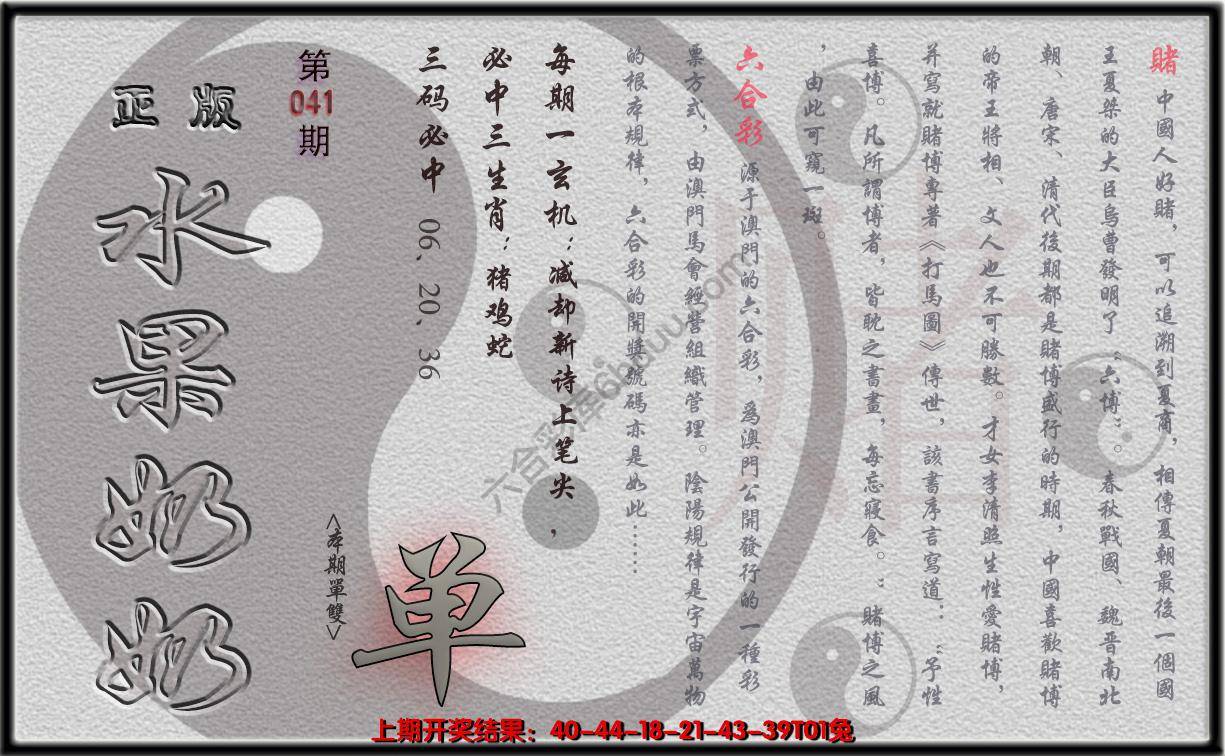 賭 中國人好賭，可以追溯到夏商，相傳夏朝最後一個國
王夏桀的大臣烏曹發明了“六博”。春秋戰國、魏晋南北
朝、唐宋、清代後期都是賭博盛行的時期，中國喜歡賭博
的帝王將相、文人也不可勝數。才女李清照生性愛賭博，
并寫就賭博專著《打馬圖》傳世，該書序言寫道：“予性
喜博。凡所謂博者，皆耽之書晝，每忘寢食。”賭博之風
，由此可窺一斑。
六合彩 源于澳門的六合彩，爲澳門公開發行的一種彩
票方式，由澳門馬會經營組織管理。陰陽規律是宇宙萬物
的根本規律，六合彩的開獎號碼亦是如此……
每期一玄机：减却新诗上笔尖，
必中三生肖：猪鸡蛇
三码必中 06、20、36
第
041
期
正版
水果奶奶
<本期單雙>
单
六合彩库6huuu.com
上期开奖结果：40-44-18-21-43-39T01兔